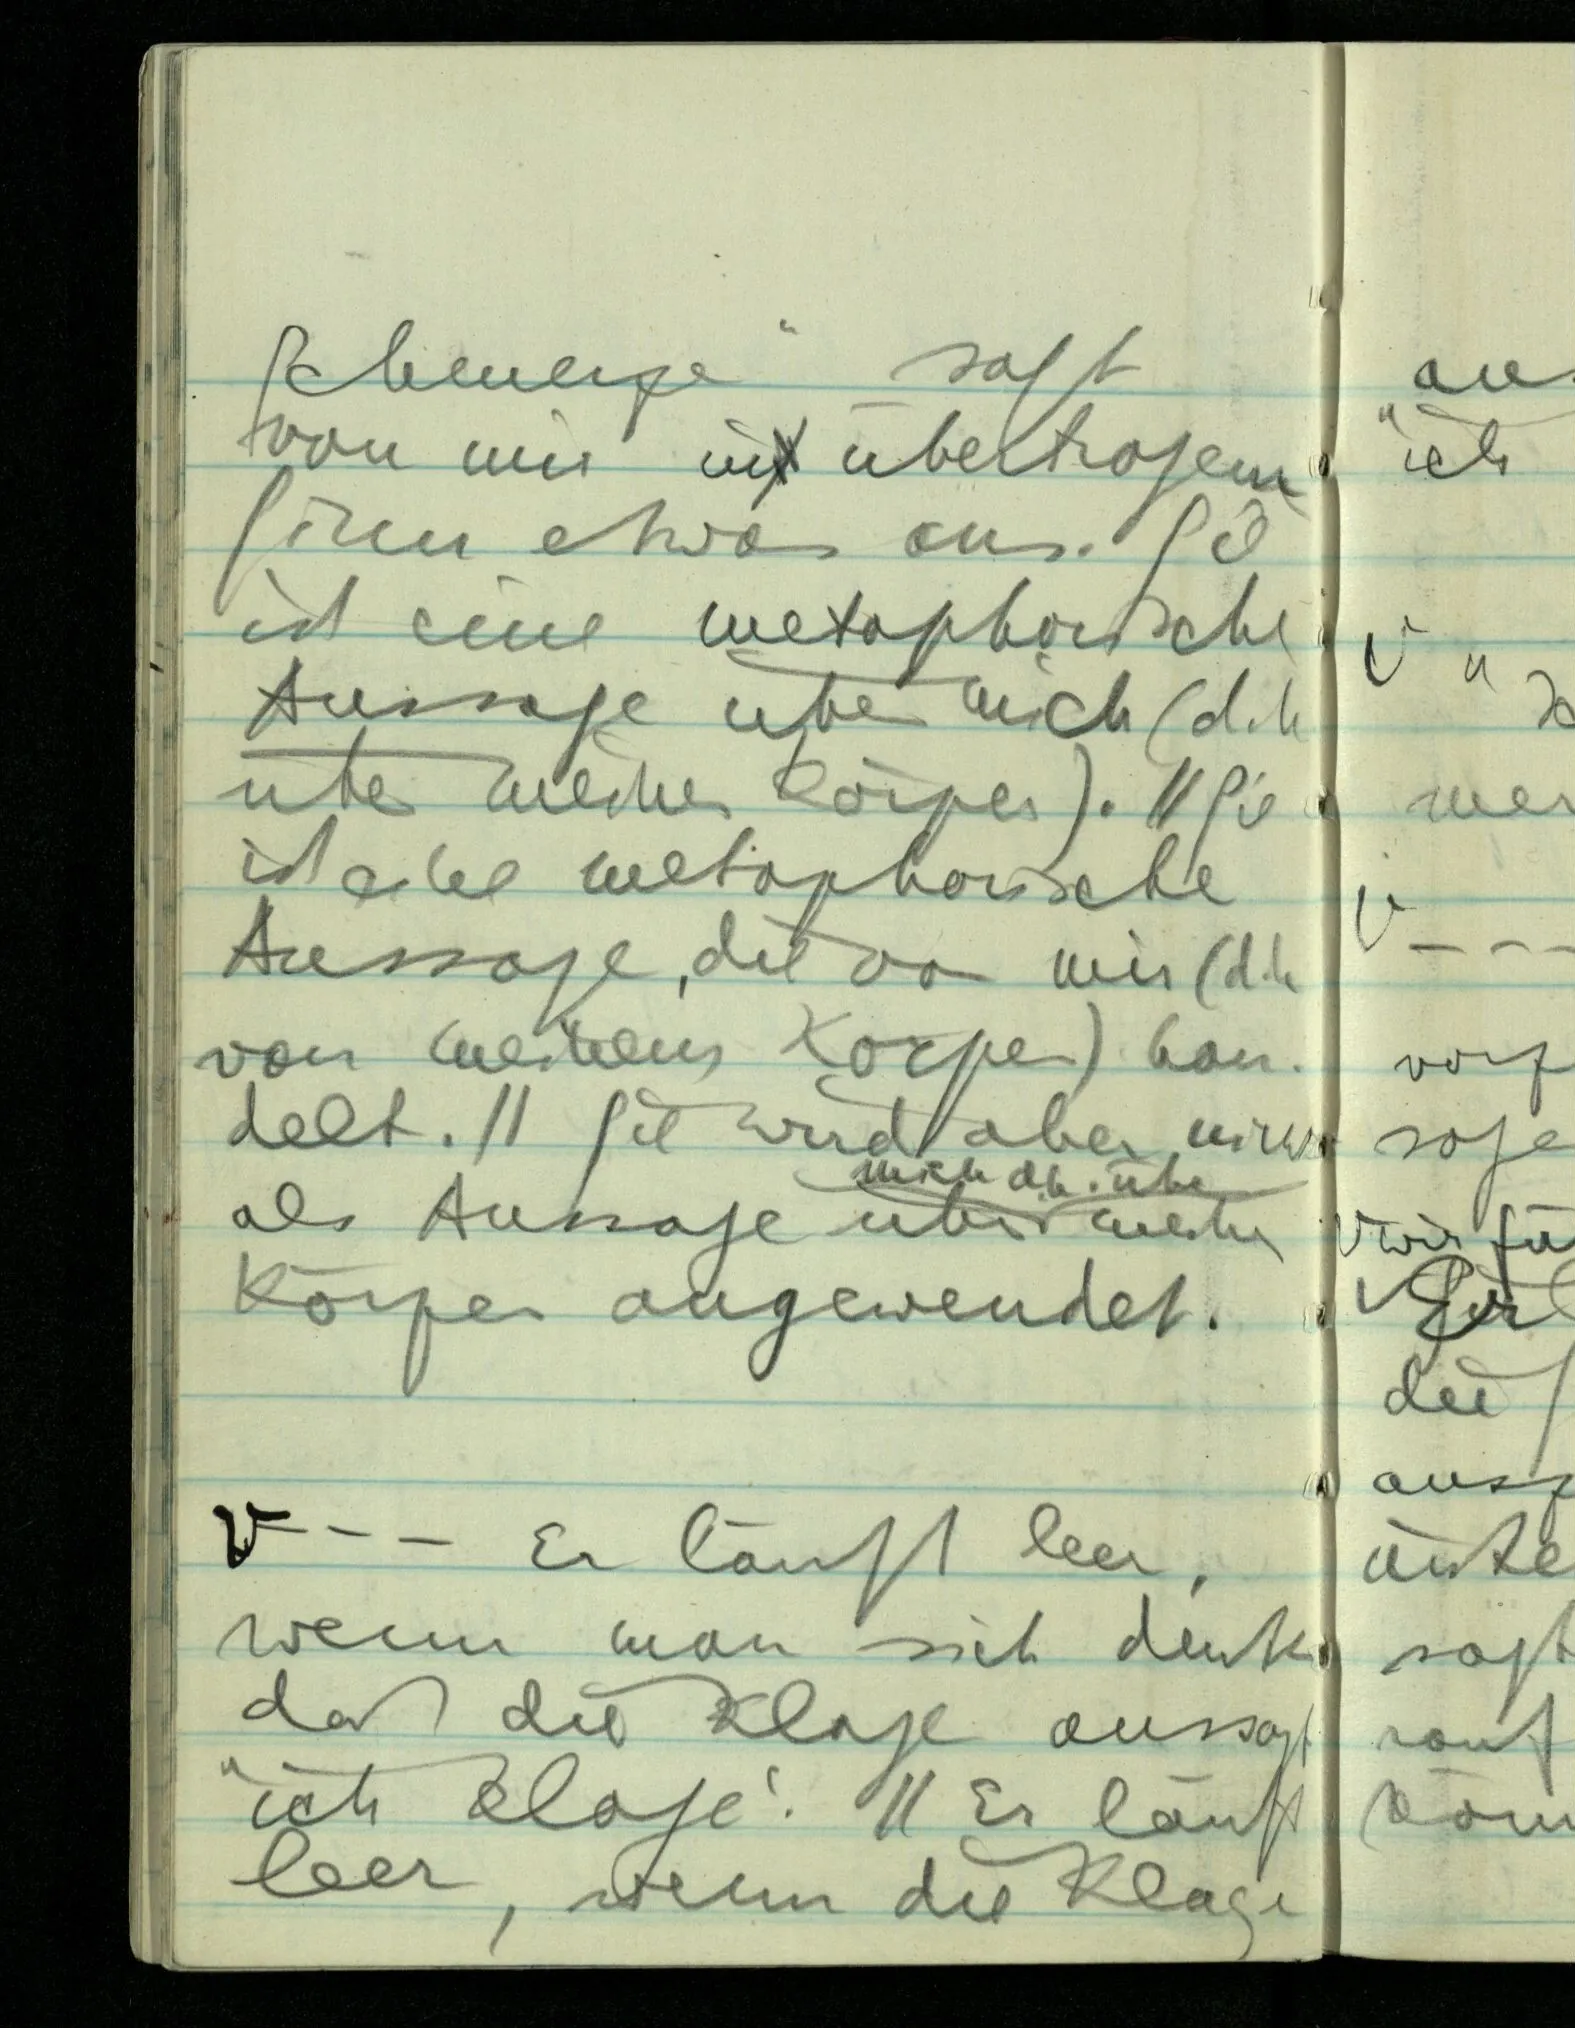 Schmerze" sagt
von mir im übertragenen
Sinn etwas aus. Sie
ist eine metaphorische
Aussage über mich (d.h
über meinen Körper). // Sie
ist eine metaphorische
Aussage, die von mir (d.h
von meinem Körper) han-
delt. // Sie wird aber
mich d.h. über
als Aussage über meinen
Körper angewendet.
V – – – Er läuft leer,
wenn man sich denkt
daß die Klage aussagt
"ich klage". // Er läuft
leer, wenn die Klage
"ich
V "
V – – –
sage
V wir
die
sagt